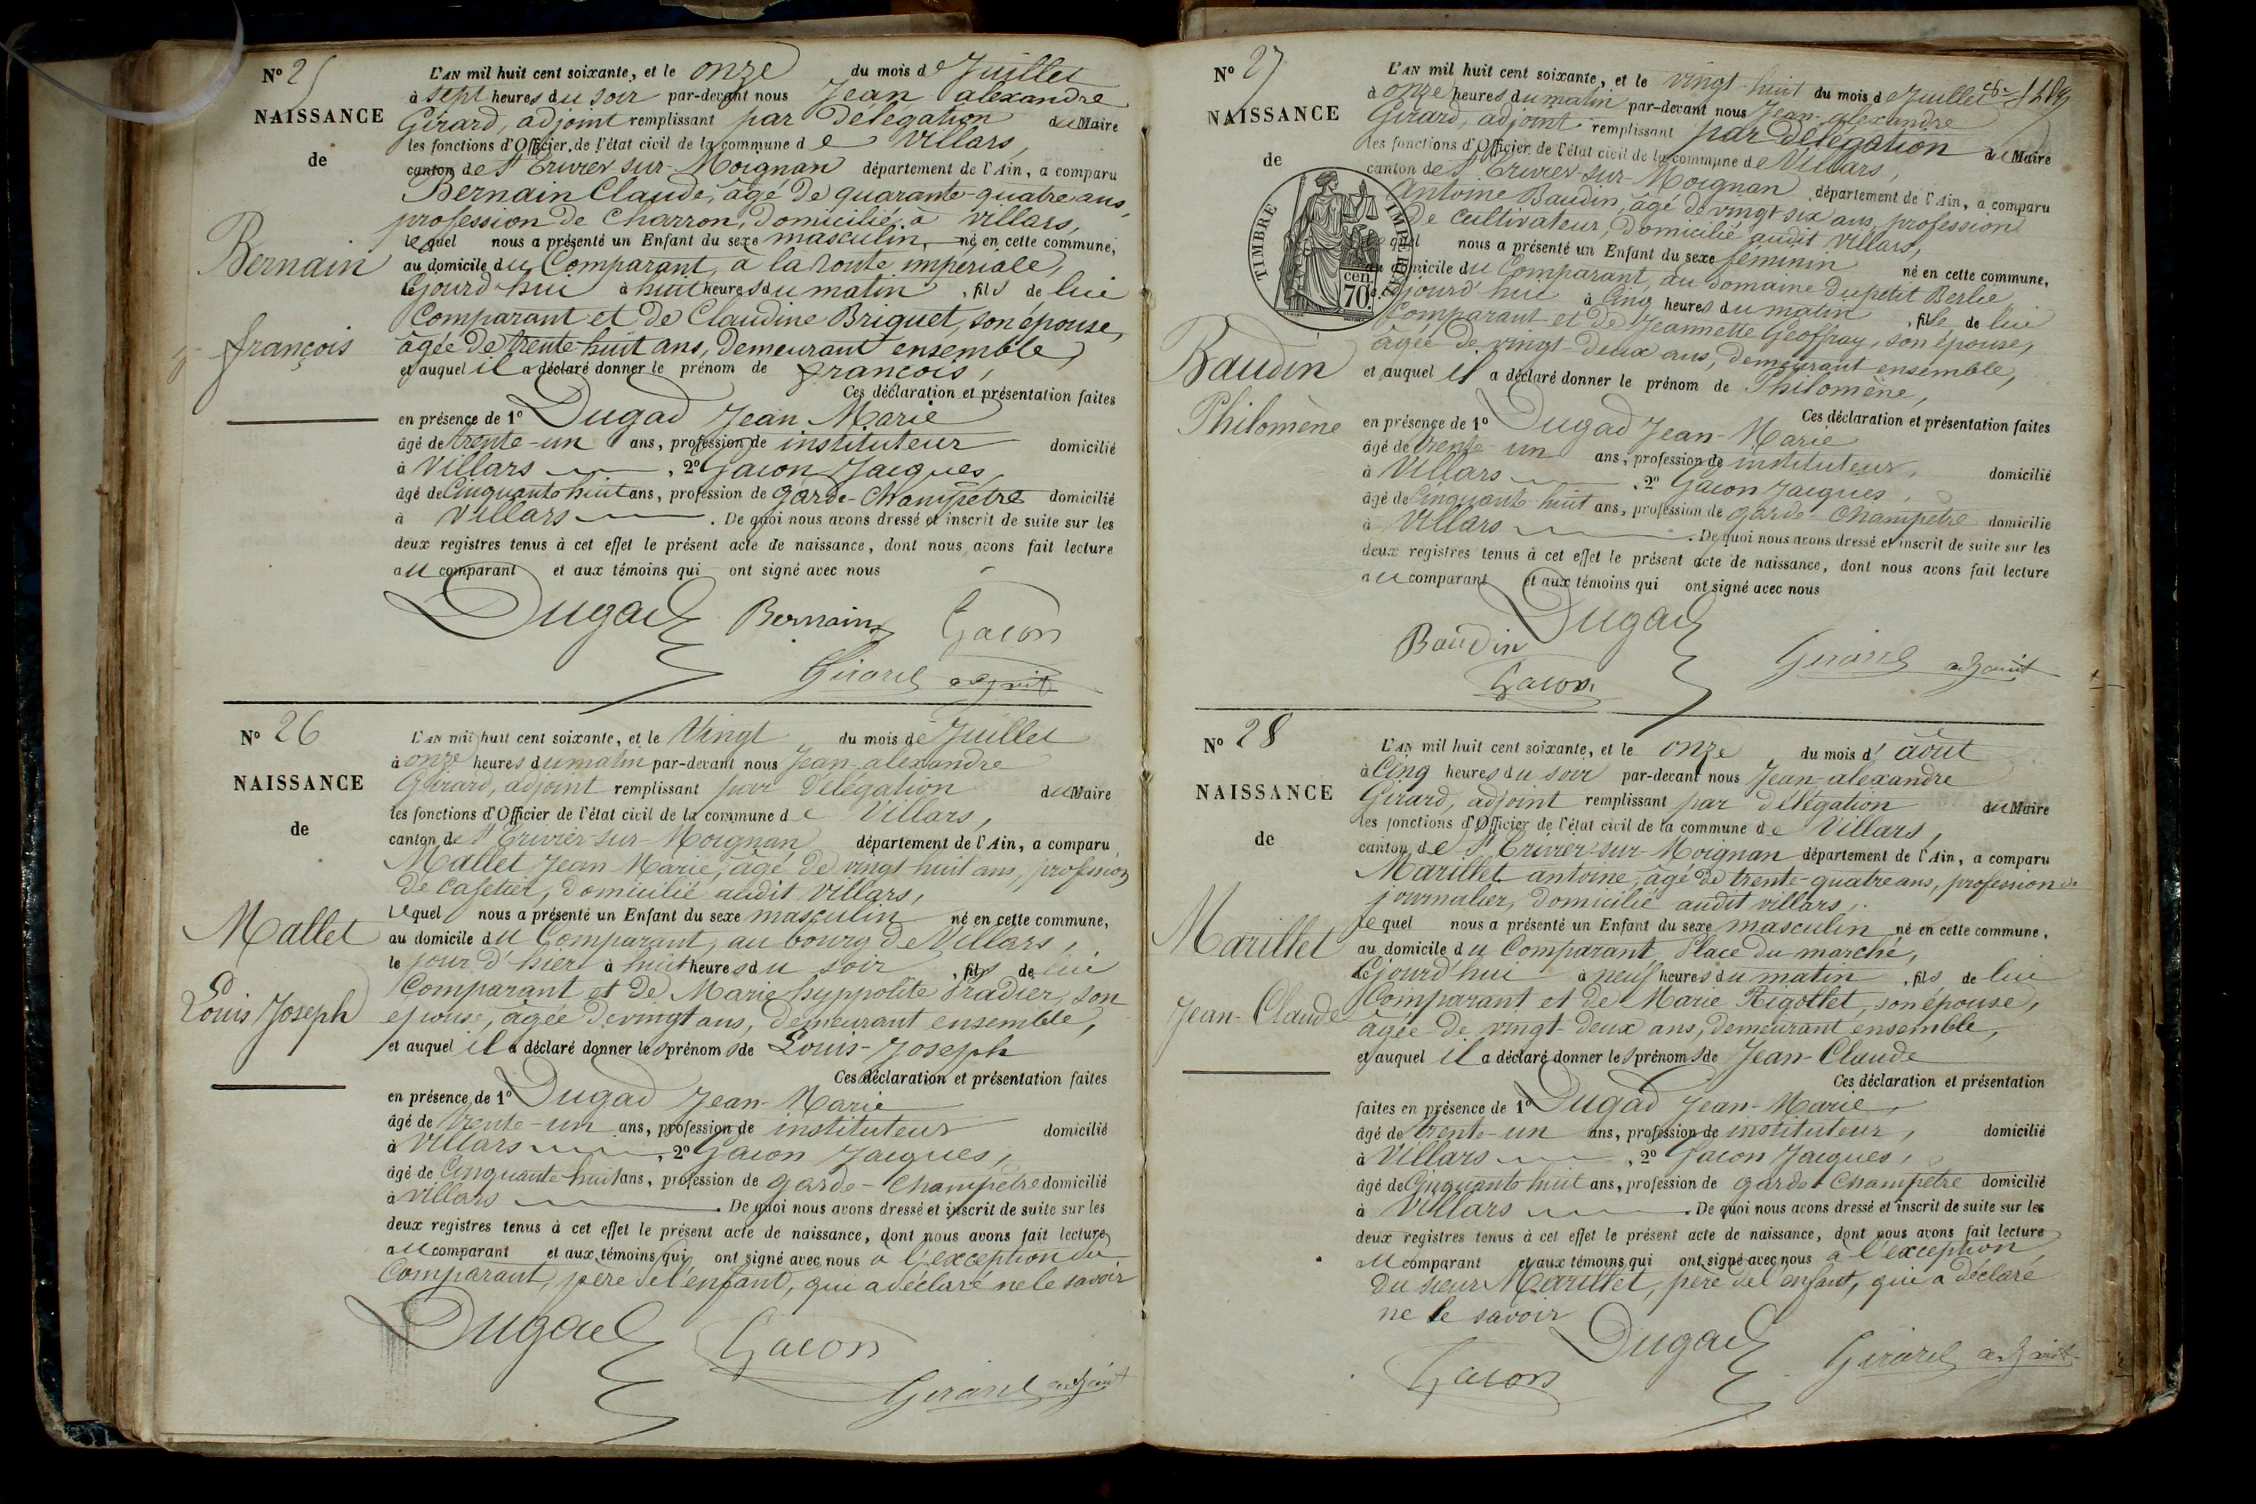 N° 25
NAISSANCE
de
Bernain
françois
L'AN mil huit cent soixante, et le onze du mois de Juillet
à sept heures du soir par-devant nous Jean alexandre
Girard, adjoint remplissant par délégation du Maire
les fonctions d'Officier de l'état civil de la commune de Villars,
canton de St Trivier-sur-Moignan département de l'Ain, a comparu
Bernain Claude, âgé de quarante-quatre ans,
profession de Charron, domicilié à villars,
lequel nous a présenté un Enfant du sexe masculin, né en cette commune,
au domicile du Comparant, à la route impériale,
cejourd'hui à huit heures du matin, fils de lui
Comparant et de Claudine Briguet, son épouse,
âgée de trente-huit ans, demeurant ensemble,
et auquel il a déclaré donner le prénom de françois,
Ces déclaration et présentation faites
en présence de 1° Dugad Jean Marie
âgé de trente-un ans, profession de instituteur domicilié
à Villars, 2° Gacon Jacques,
âgé de Cinquante huit ans, profession de garde-Champêtre domicilié
à Villars. De quoi nous avons dressé et inscrit de suite sur les
deux registres tenus à cet effet le présent acte de naissance, dont nous avons fait lecture
au comparant et aux témoins qui ont signé avec nous
Dugad Bernain Gacon
Girard adjoint
N° 26
NAISSANCE
de
Mallet
Louis Joseph
L'AN mil huit cent soixante, et le Vingt du mois de Juillet
à onze heures du matin par-devant nous Jean-alexandre
Girard, adjoint remplissant par délégation du Maire
les fonctions d'Officier de l'état civil de la commune de Villars,
canton de St Trivier-sur-Moignan département de l'Ain, a comparu
Mallet Jean Marie, âgé de vingt huit ans, profession
de cafetier, domicilié audit villars,
lequel nous a présenté un Enfant du sexe masculin né en cette commune,
au domicile du Comparant, au bourg de Villars,
le jour d'hier à huit heures du soir, fils de lui
Comparant et de Marie hyppolite Pradier, son
epouse, âgée de vingt ans, demeurant ensemble,
et auquel il a déclaré donner les prénoms de Louis-Joseph
Ces déclaration et présentation faites
en présence de 1° Dugad Jean-Marie
âgé de trente-un ans, profession de instituteur domicilié
à Villars, 2° Gacon Jacques,
âgé de Cinquante huit ans, profession de garde-Champêtre domicilié
à villars. De quoi nous avons dressé et inscrit de suite sur les
deux registres tenus à cet effet le présent acte de naissance, dont nous avons fait lecture
au comparant et aux témoins qui ont signé avec nous à l'exception du
Comparant, père de l'enfant, qui a déclaré ne le savoir
Dugad Gacon
Girard adjoint
N° 27
NAISSANCE
de
TIMBRE IMPERIAL
70 cen
Baudin
Philomène
L'AN mil huit cent soixante, et le vingt-huit du mois de Juillet
à onze heures du matin par-devant nous Jean-alexandre
Girard, adjoint remplissant par délégation du Maire
les fonctions d'Officier de l'état civil de la commune de Villars,
canton de St Trivier-sur-Moignan département de l'Ain, a comparu
Antoine Baudin, âgé de vingt six ans, profession
de cultivateur, domicilié audit Villars,
lequel nous a présenté un Enfant du sexe féminin né en cette commune,
au domicile du Comparant, au domaine du petit Berlie,
cejourd'hui à Cinq heures du matin, fille de lui
Comparant et de Jeannette Geoffray, son épouse,
âgée de vingt-deux ans, demeurant ensemble,
et auquel il a déclaré donner le prénom de Philomène,
Ces déclaration et présentation faites
en présence de 1° Dugad Jean-Marie
âgé de trente-un ans, profession de instituteur, domicilié
à Villars, 2° Gacon Jacques,
âgé de Cinquante huit ans, profession de garde-Champêtre domicilié
à Villars. De quoi nous avons dressé et inscrit de suite sur les
deux registres tenus à cet effet le présent acte de naissance, dont nous avons fait lecture
au comparant et aux témoins qui ont signé avec nous
Dugad
Baudin Girard adjoint
Gacon
N° 28
NAISSANCE
de
Marillet
Jean-Claude
L'AN mil huit cent soixante, et le onze du mois d'août
à Cinq heures du soir par-devant nous Jean-alexandre
Girard, adjoint remplissant par délégation du Maire
les fonctions d'Officier de l'état civil de la commune de Villars,
canton de St Trivier-sur-Moignan département de l'Ain, a comparu
Marillet antoine, âgé de trente-quatre ans, profession de
journalier, domicilié audit villars,
lequel nous a présenté un Enfant du sexe masculin né en cette commune,
au domicile du Comparant Place du marché,
cejourd'hui à neuf heures du matin, fils de lui
Comparant et de Marie Rigottet, son épouse,
âgée de vingt-deux ans, demeurant ensemble,
et auquel il a déclaré donner les prénoms de Jean-Claude
Ces déclaration et présentation
faites en présence de 1° Dugad Jean-Marie,
âgé de trente-un ans, profession de instituteur, domicilié
à Villars, 2° Gacon Jacques,
âgé de Cinquante huit ans, profession de garde-Champêtre domicilié
à Villars. De quoi nous avons dressé et inscrit de suite sur les
deux registres tenus à cet effet le présent acte de naissance, dont nous avons fait lecture
au comparant et aux témoins qui ont signé avec nous à l'exception
du sieur Marillet, père de l'enfant, qui a déclaré
ne le savoir
Dugad
Gacon Girard adjoint